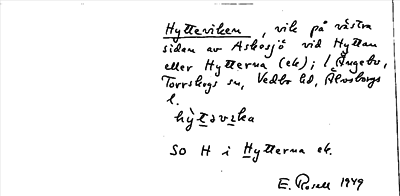 Hytteviken, vik på västra
sidan av Askesjö vid Hyttan
eller Hytterna (ek); i Ängebo,
Torrskogs sn, Vedbo hd, Älvsborgs
l.
hỳtəvika
SO H i Hytterna ek.
E. Rosell 1949